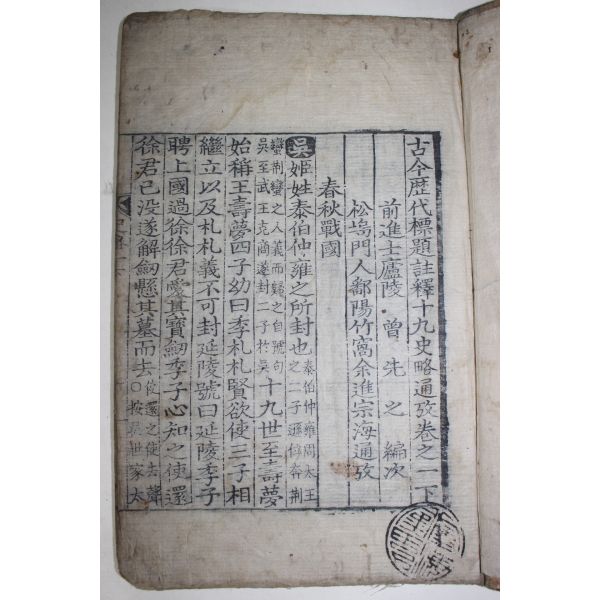 古今歷代標題註釋十九史略通攷卷之一下
前進士廬陵 曾先之 編次
松塢門人鄱陽竹窩余進宗海通攷
春秋戰國
吳姬姓泰伯仲雍之所封也泰伯仲雍周太王之二子遜位奔荆
蠻荆蠻之人義而歸之自號句吳至武王克商遂封二子於吳十九世至壽夢
始稱王壽夢四子幼曰季札札賢欲使三子相
繼立以及札札義不可封延陵號曰延陵季子
聘上國過徐徐君愛其寶劒季子心知之使還
徐君已没遂解劒懸其墓而去使還之使去聲○按吳世家太